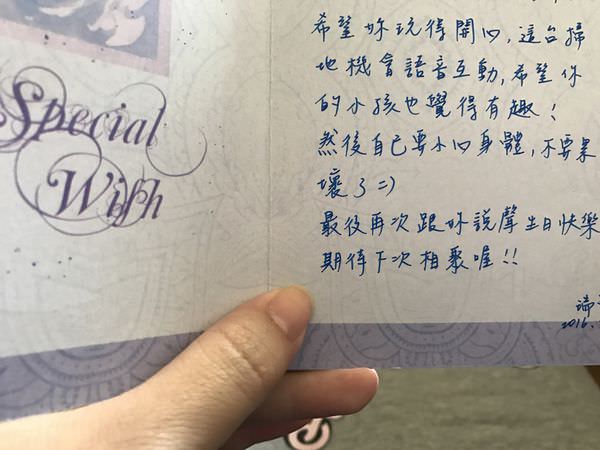 Special
Wish
希望妳玩得開心,這台掃
地機會語音互動,希望你
的小孩也覺得有趣!
然後自己要小心身體,不要累
壞了=)
最後再次跟妳說聲生日快樂
期待下次相聚喔!!
2016.